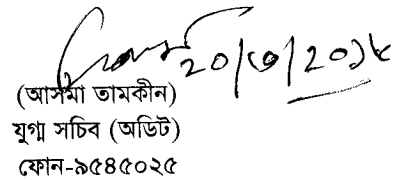 ২০/৩/২০১৮
(আসমা তামকীন)
যুগ্ম সচিব (অডিট)
ফোন-৯৫৪৫০২৫